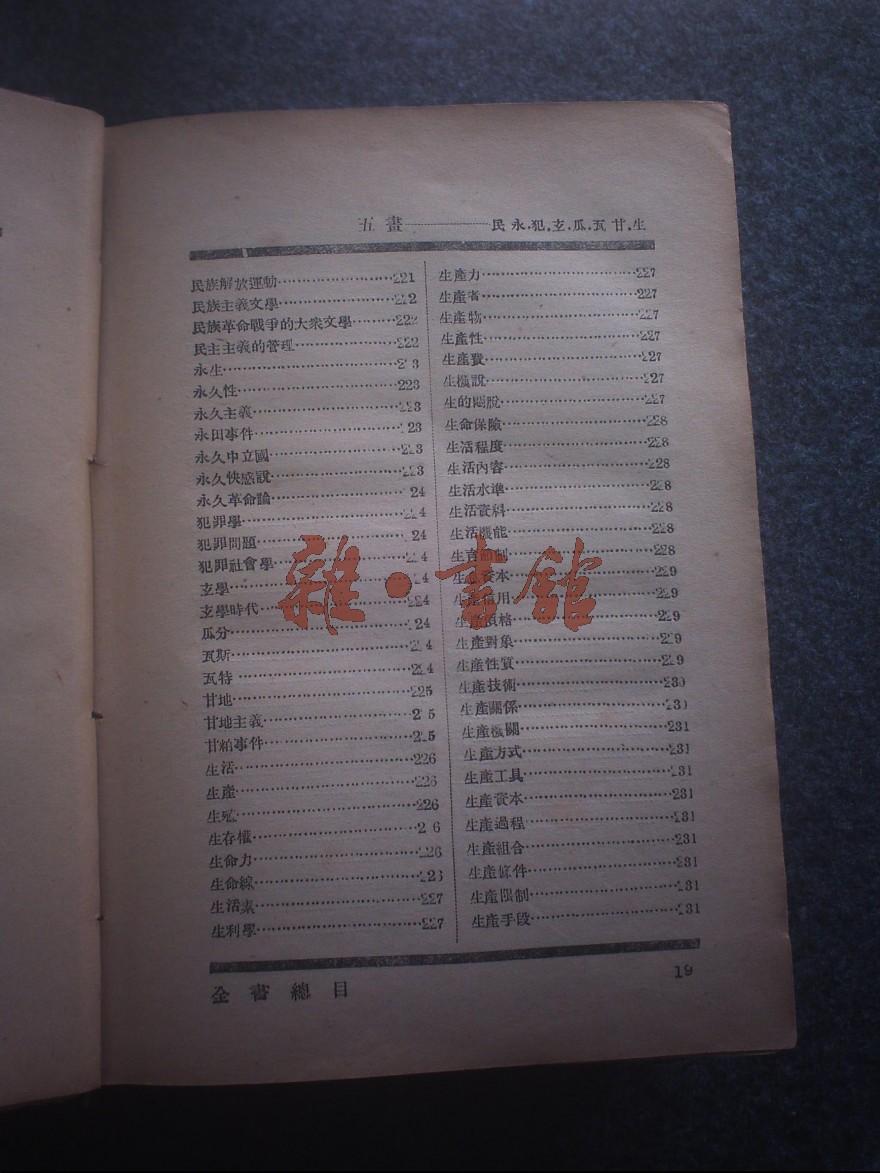 五畫————民.永.犯.玄.瓜.瓦.甘.生
民族解放運動……221
民族主義文學……222
民族革命戰爭的大衆文學……222
民主主義的管理……222
永生……223
永久性……223
永久主義……223
永田事件……223
永久中立國……223
永久快感說……223
永久革命論……224
犯罪學……224
犯罪問題……224
犯罪社會學……224
玄學……224
玄學時代……224
瓜分……224
瓦斯……224
瓦特……224
甘地……225
甘地主義……225
甘粕事件……225
生活……226
生產……226
生殖……226
生存權……226
生命力……226
生命線……226
生活素……227
生利學……227
生產力……227
生產者……227
生產物……227
生產性……227
生產費……227
生機說……227
生的……227
生命保險……228
生活程度……228
生活內容……228
生活水準……228
生活資料……228
生活機能……228
生育節制……228
生息資本……229
生產信用……229
生產價格……229
生產對象……229
生產性質……229
生產技術……230
生產關係……231
生產機關……231
生產方式……231
生產工具……231
生產資本……231
生產過程……231
生產組合……231
生產條件……231
生產限制……231
生產手段……231
全書總目
19
雜·書館